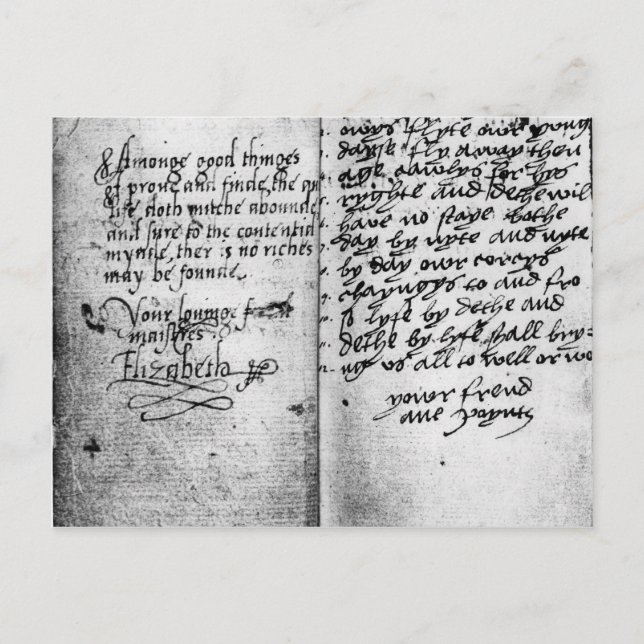 Amonge good thinges
I prove and finde, the qu
life doth mutche abounde
and sure to the contentid
mynde, ther is no riches
may be founde.
Your lovinge
maistres
Elizabeth
owrs flyte owr yong
dayse fly away then
age cawlys for hys
ryghte and dethe wil
have no staye bothe
day by nyte and nyte
by day owr corcys
chayngys to and fro
so lyfe by dethe and
dethe by lyfe shall bry-
ng us all to well or wo
yowr frend
ane poynts